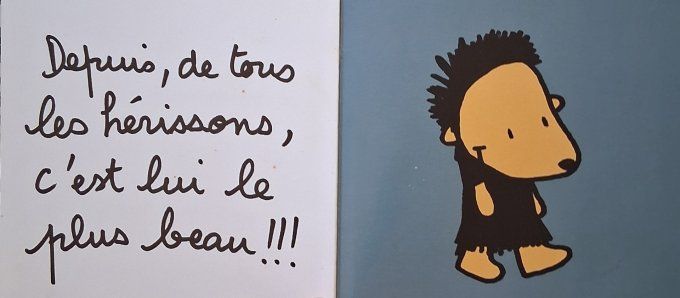 Depuis, de tous
les hérissons,
c'est lui le
plus beau!!!